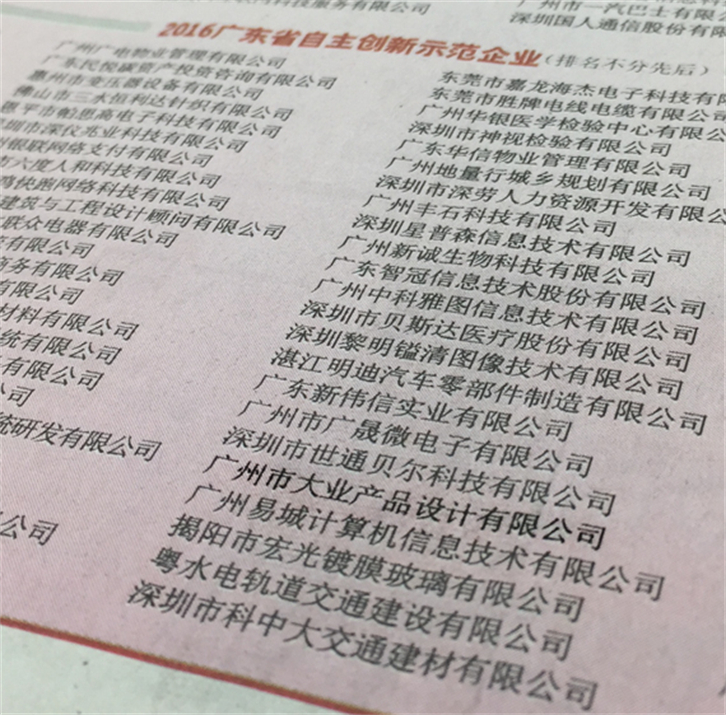 科技服务有限公司
广州市一汽巴士有限
深圳国人通信股份有限
2016广东省自主创新示范企业(排名不分先后)
广州广电物业管理有限公司
广东民悦碳资产投资咨询有限公司
惠州市变压器设备有限公司
佛山市三水恒利达针织有限公司
恩平市帕思高电子科技有限公司
深圳市深仪兆业科技有限公司
银联网络支付有限公司
市六度人和科技有限公司
鸿快跑网络科技有限公司
建筑与工程设计顾问有限公司
联众电器有限公司
有限公司
商务有限公司
有限公司
材料有限公司
统有限公司
有限公司
公司
统研发有限公司
公司
东莞市嘉龙海杰电子科技有限
东莞市胜牌电线电缆有限公
广州华银医学检验中心有限公
深圳市神视检验有限公司
广东华信物业管理有限公司
广州地量行城乡规划有限公司
深圳市深劳人力资源开发有限公
广州丰石科技有限公司
深圳星普森信息技术有限公司
广州新诚生物科技有限公司
广东智冠信息技术股份有限公司
广州中科雅图信息技术有限公司
深圳市贝斯达医疗股份有限公司
深圳黎明镒清图像技术有限公司
湛江明迪汽车零部件制造有限公司
广东新伟信实业有限公司
广州市广晟微电子有限公司
深圳市世通贝尔科技有限公司
广州市大业产品设计有限公司
广州易城计算机信息技术有限公司
揭阳市宏光镀膜玻璃有限公司
粤水电轨道交通建设有限公司
深圳市科中大交通建材有限公司